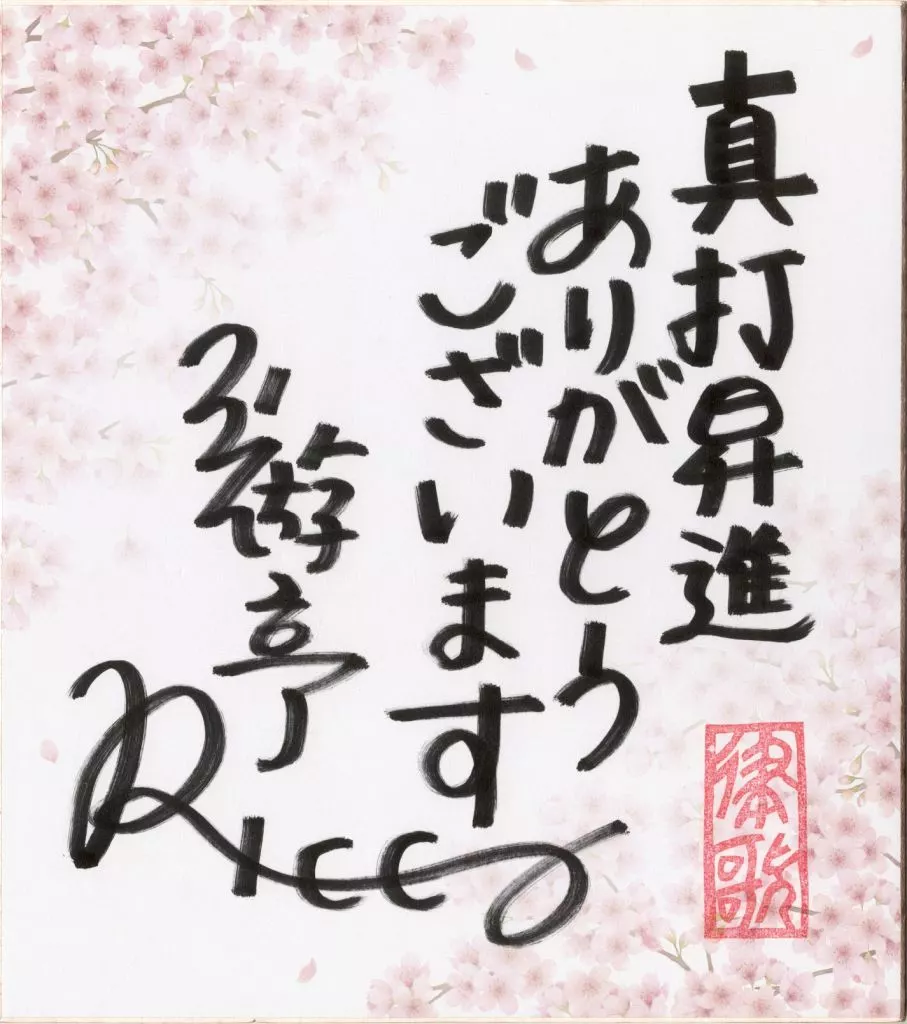 真打昇進
ありがとう
ございます
三遊亭
Ricca
律歌